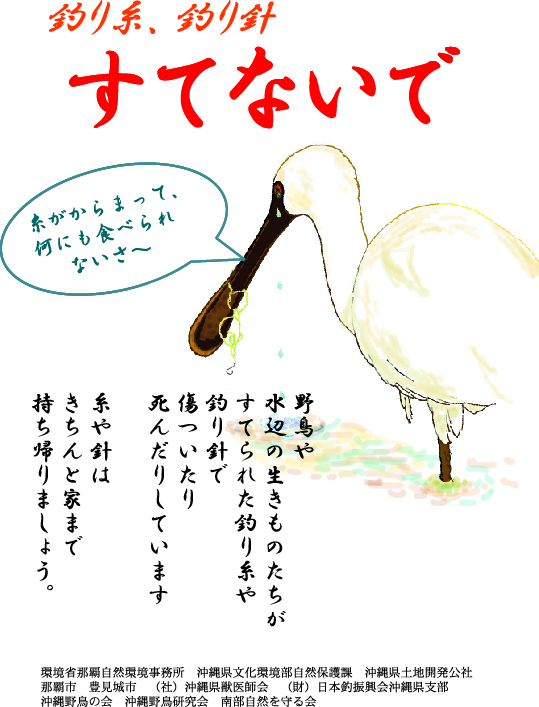 釣り糸、釣り針
すてないで
糸がからまって、
何にも食べられ
ないさ～
野鳥や
水辺の生きものたちが
すてられた釣り糸や
釣り針で
傷ついたり
死んだりしています
糸や針は
きちんと家まで
持ち帰りましょう。
環境省那覇自然環境事務所　沖縄県文化環境部自然保護課　沖縄県土地開発公社
那覇市　豊見城市　（社）沖縄県獣医師会　（財）日本釣振興会沖縄県支部
沖縄野鳥の会　沖縄野鳥研究会　南部自然を守る会